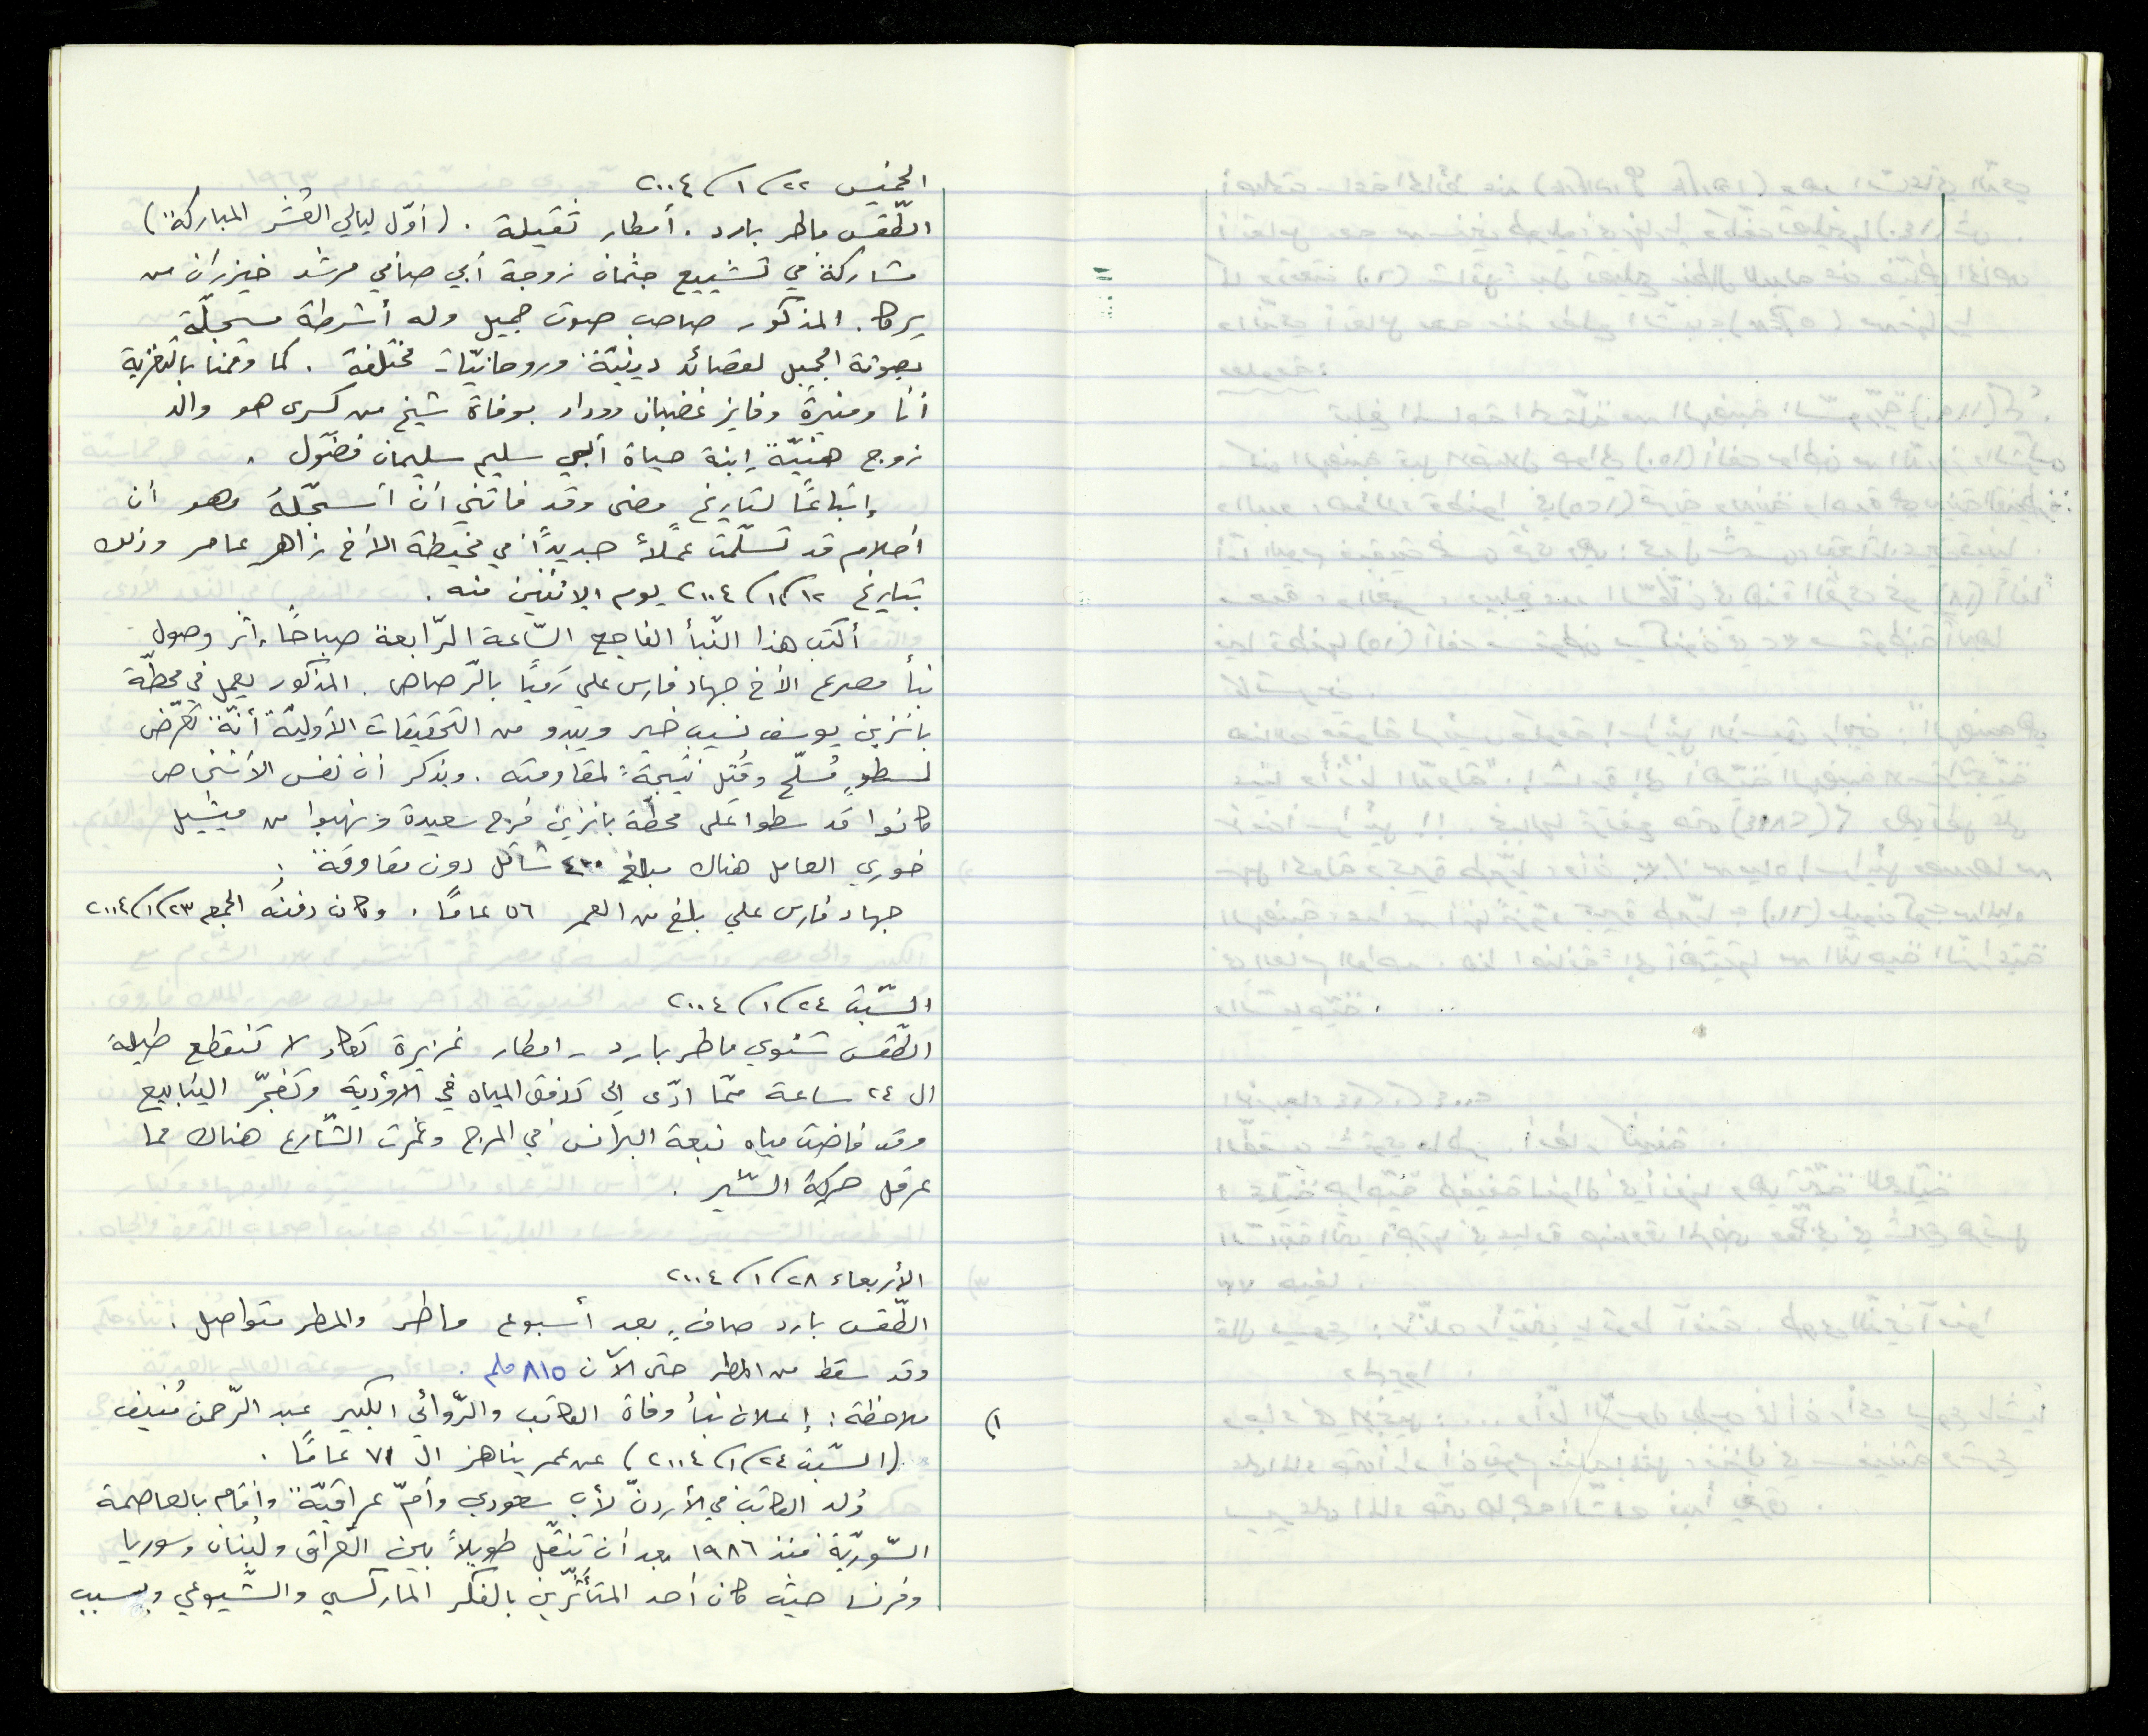 الخميس ٢٢/١/٢٠٠٤
الطّقس ماطر بارد. أمطار ثقيلة. (أوّل ليالي العَشر المباركة)
مشاركة في تشييع جثمان زوجة أبي صافي مرشد خيزران من
يركا. المذكور صاحب صوت جميل وله أشرطة مسجّلة
بصوته الجميل لقصائد دينيّة وروحانيّات مختلفة. كما وقمنا بالتّعزية
أنا ومنيرة وفايز غضبان ووداد بوفاة شيخ من كسرى هو والد
زوج هنيّة إبنة حياة أبي سليم سليمان فضّول.
إتباعًا لتاريخ مضى وقد فاتني أن أسجّلهُ وهو أن
أحلام قد تسلّمت عملاً جديدًا في مخيطة الأخ زاهر عامر وذلك
بتاريخ ١٢/١/٢٠٠٤ يوم الإثنين منه.
أكتب هذا النّبأ الفاجع السّاعة الرّابعة صباحًا، إثر وصول
نبأ مصرع الأخ جهاد فارس علي رَميًا بالرّصاص. المذكور يعمل في محطّة
بانزين يوسف نسيب خير ويبدو من التحقيقات الأوليّة أنّهُ تعرّض
لسطوٍ مُسلّح وقُتل نتيجة لمقاومته. ويذكر ان نفس الأشخاص
كانوا قد سطوا على محطّة بانزين فرج سعيدة ونهبوا من ميشيل
خوري العامل هناك مبلغ ٤٠٠ شاقل دون مقاومة.
جهاد فارس علي بلغ من العمر ٥٦ عامًا. وكان دفنُه الجمعه ٢٣/١/٢٠٠٤
السّبت ٢٤/١/٢٠٠٤
الطّقس شتوي ماطر بارد - امطار غزيرة تكاد لا تنقطع طيلة
ال ٢٤ ساعة ممّا ادّى إلى تدفق المياه في الأودية وتفجّر الينابيع
وقد فاضت مياه نبعة البرانس في المرج وغمرت الشّارع هناك مما
عرقل حركة السّير.
الأربعاء ٢٨/١/٢٠٠٤
الطّقس بارد صافٍ، بعد أسبوع ماطر والمطر متواصل.
وقد سقط من المطر حتى الآن ٨١٥ ملم.
١) ملاحظة: إعلان نبأ وفاة الكاتب والرّوائي الكبير عبد الرّحمن مُنيف
(السّبت ٢٤/١/٢٠٠٤) عن عمر يناهز ال ٧١ عامًا.
وُلد الكاتب في الأردنّ لأب سعودي وأمّ عراقيّة وأقام بالعاصمة
السّوريّة منذ ١٩٨٦ بعد أن تنقّل طويلاً بين العراق ولبنان وسوريا
وفرنسا حيث كان أحد المتأثّرين بالفكر الماركسي والشّيوعي وبسبب